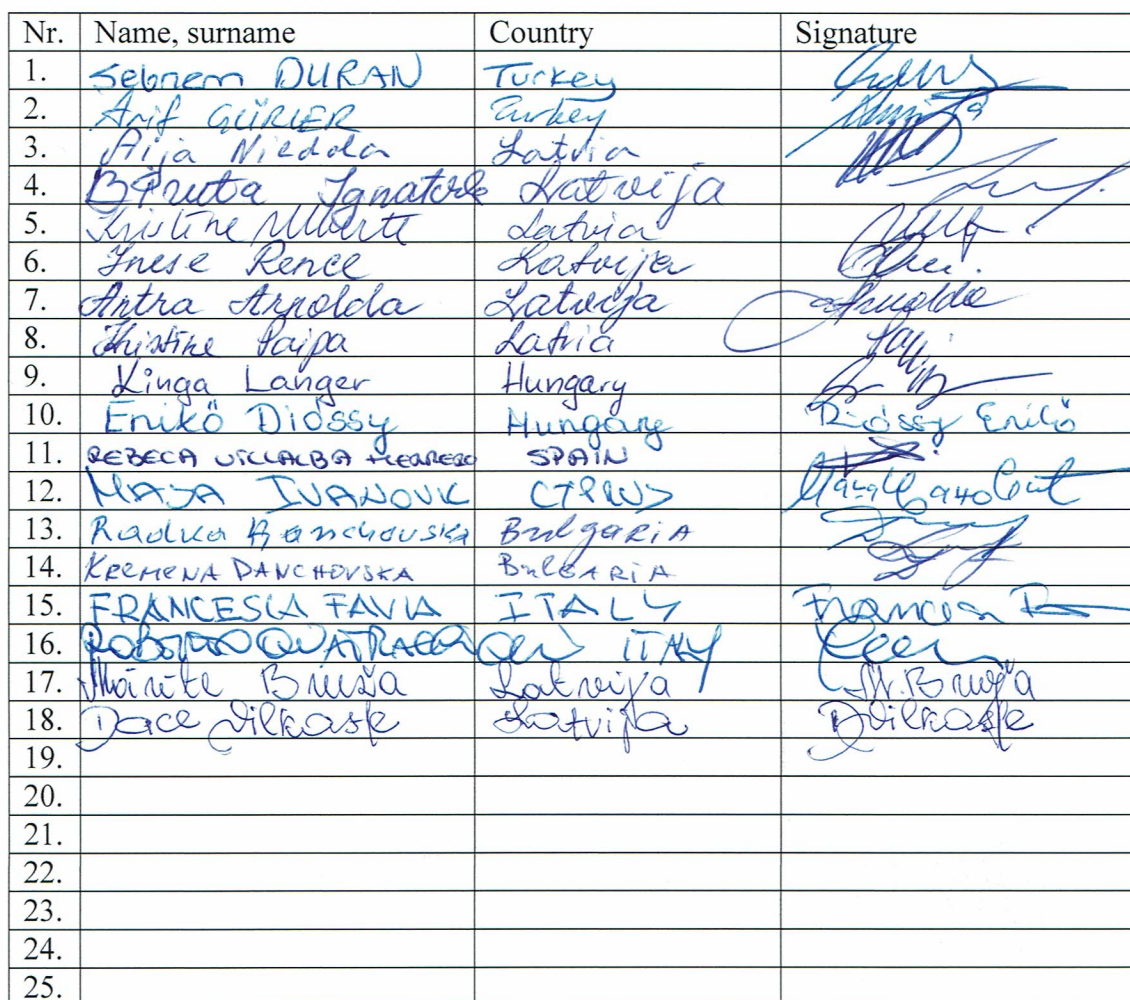 Nr. Name, surname Country Signature
1. Sebnem DURAN Turkey
2. Arif GÜRLER Turkey
3. Aija Niedola Latvia
4. Biruta Latvija
5. Kristine Latvia
6. Inese Rence Latvija
7. Antra Arnolda Latvija Arnolda
8. Kristine Paipa Latvia
9. Kinga Langer Hungary
10. Enikő Dióssy Hungary Dióssy Enikő
11. REBECA VILLALBA HERRERO SPAIN
12. MAJA IVANOVIC CYPRUS
13. Radka Banchovska BulgaRiA
14. KREMENA DANCHOVSKA BulGARiA
15. FRANCESCA FAVIA ITALY
16. ITALY
17. Mārīte Bruža Latvija M. Bruža
18. Dace Vilkaste Latvija DVilkaste
19.
20.
21.
22.
23.
24.
25.